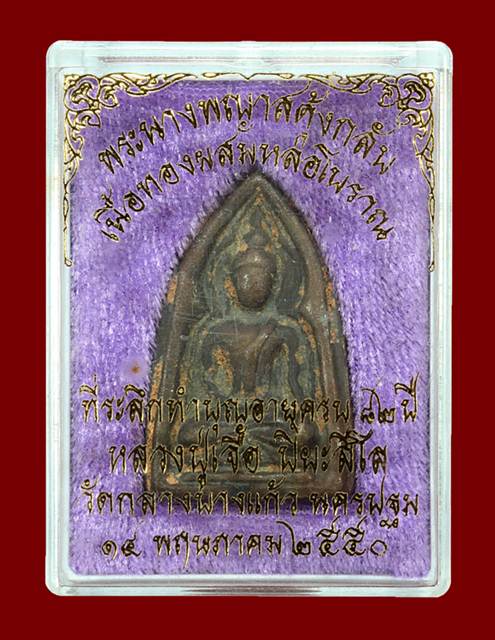 พระนางพญาสดุ้งกลับ
เนื้อทองผสมหล่อโบราณ
ที่ระลึกทำบุญอายุครบ ๘๒ ปี
หลวงปู่เจือ ปิยะสีโล
วัดกลางบางแก้ว นครปฐม
๑๔ พฤษภาคม ๒๕๕๐